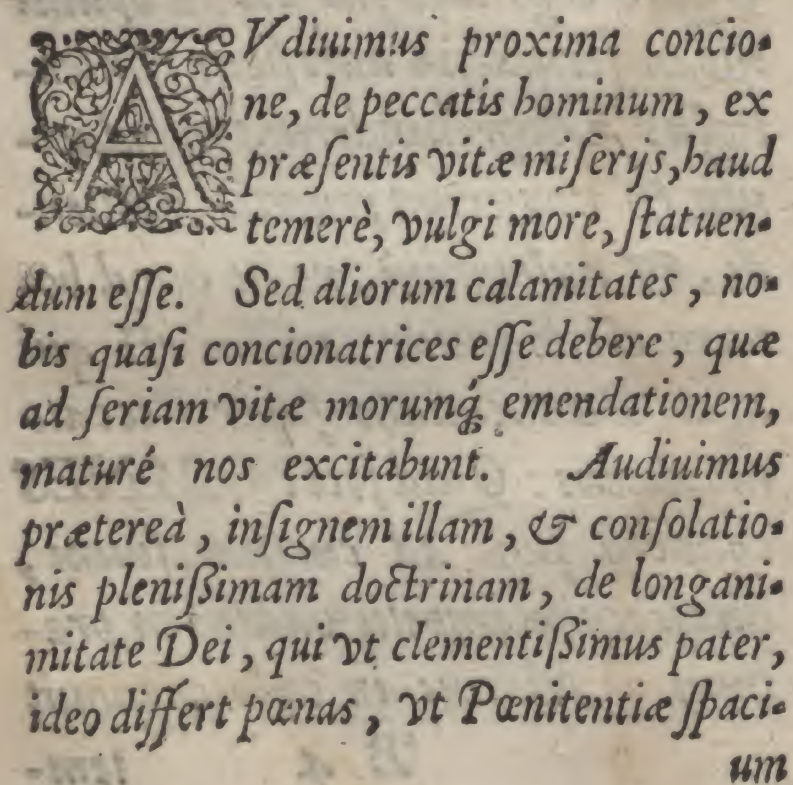 AVdiuimus proxima concio-
ne, de peccatis hominum, ex
præſentis vitæ miſerijs, haud
temerè, vulgi more, ſtatuen-
dum eſſe. Sed aliorum calamitates, no-
bis quaſi concionatrices eſſe debere, quæ
ad ſeriam vitæ morumq́; emendationem,
maturé nos excitabunt. Audiuimus
prætereà, inſignem illam, & conſolatio-
nis pleniſſimam doctrinam, de longani-
mitate Dei, qui vt clementiſſimus pater,
ideo differt pœnas, vt Pœnitentiæ ſpaci-
um